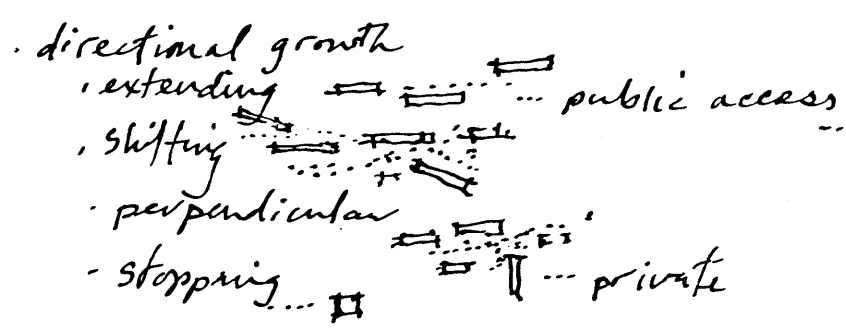 · directional growth
· extending
... public access
· shifting
· perpendicular
- stopping ....
... private